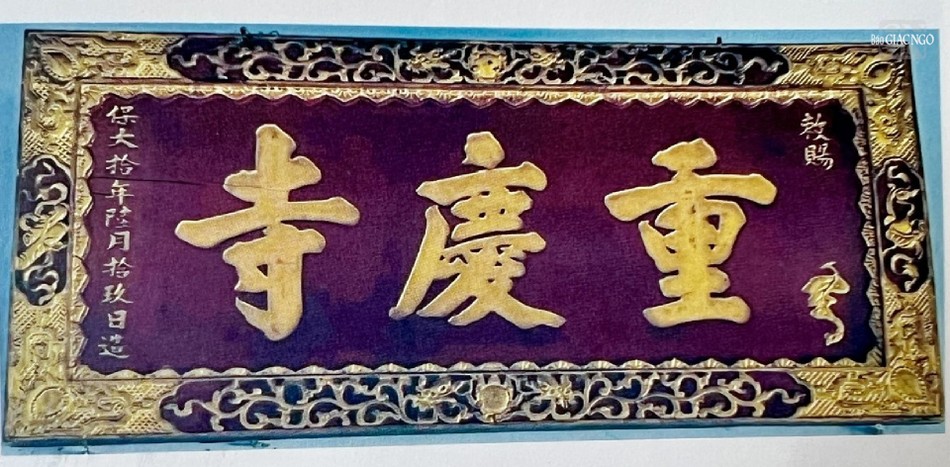 敕賜
重慶寺
保大拾年陸月拾玖日造
Báo GIÁC NGỘ